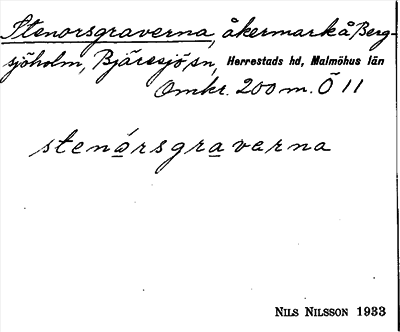 Stenorsgraverna, åkermark å Berg-
sjöholm, Bjäresjö sn, Herrestads hd, Malmöhus län
Omkr. 200 m. Ö 11
stenårsgraverna
NILS NILSSON 1933